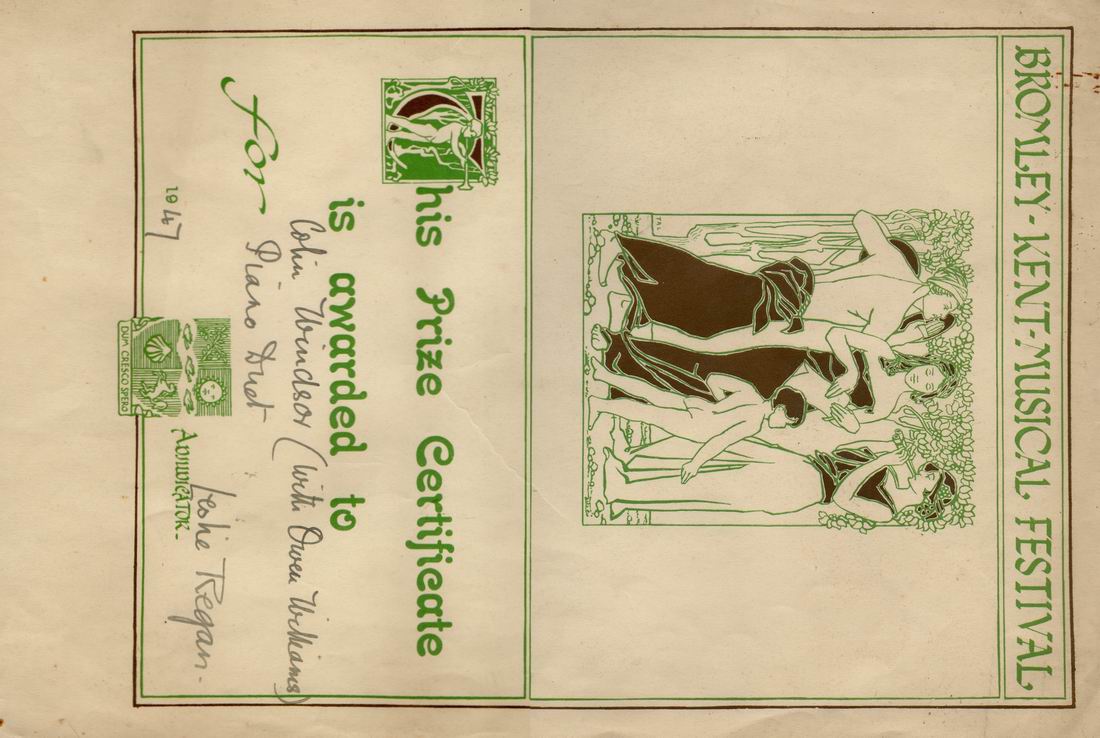 BROMLEY - KENT - MUSICAL FESTIVAL
This Prize Certificate
is awarded to
Colin Windsor (with Owen Williams)
for Piano Duet
1947
DUM CRESCO SPERO
ADJUDICATOR - Leslie Regan -